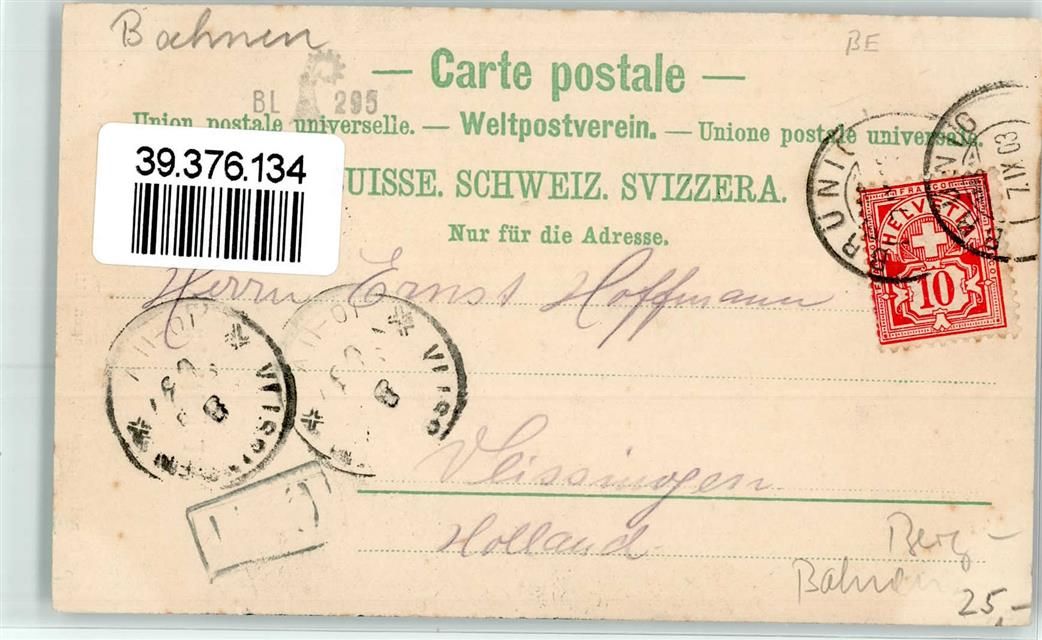 Bahnen
BE
— Carte postale —
BL 295
Union postale universelle. — Weltpostverein. — Unione postale universale.
39.376.134
SUISSE. SCHWEIZ. SVIZZERA.
Nur für die Adresse.
BRUNIG
7.IX.03
FRANCO
HELVETIA
10
Herrn Ernst Hoffmann
VLISSINGEN
VLISS
Vlissingen
Holland
Berg-
Bahnen
25,-